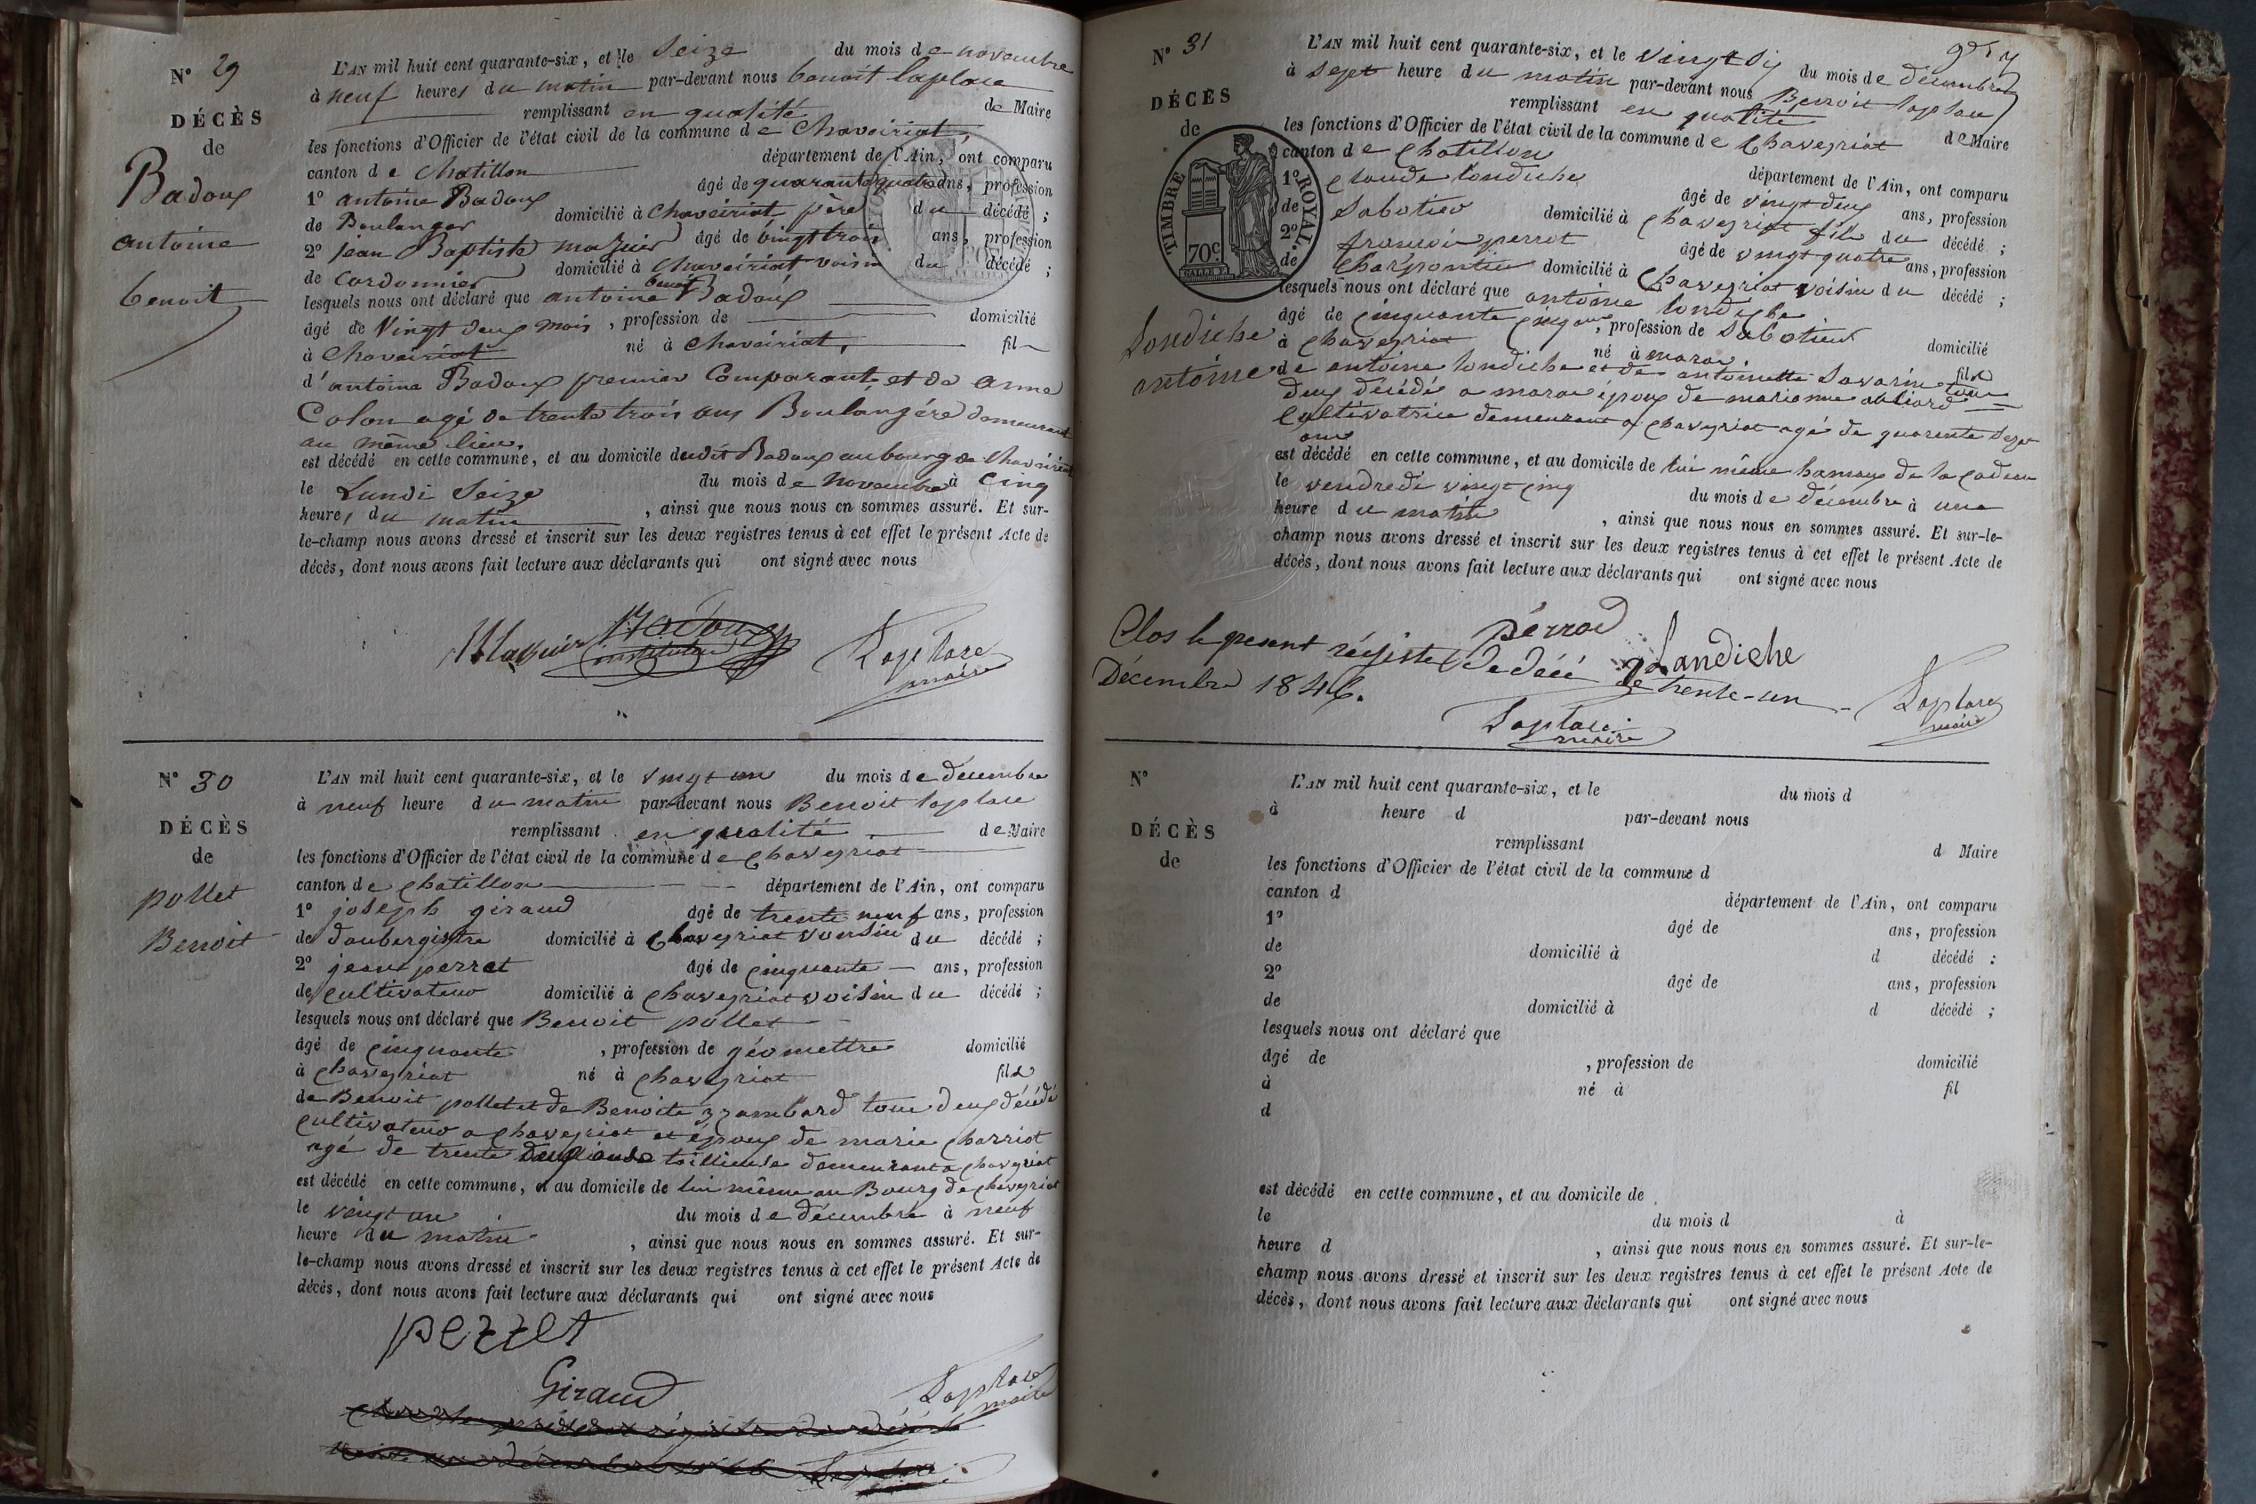 N° 29
DÉCÈS
de
Badoux
antoine
benoit
L'AN mil huit cent quarante-six, et le Seize du mois de novembre
à neuf heures du matin par-devant nous benoit laplace
remplissant en qualité de Maire
les fonctions d'Officier de l'état civil de la commune de Chaveiriat,
canton de Chatillon département de l'Ain, ont comparu
1° antoine Badoux âgé de quarante quatre ans, profession
de Boulanger domicilié à Chaveiriat père du décédé ;
2° jean Baptiste mazuir âgé de vingt trois ans, profession
de Cordonnier domicilié à Chaveiriat voisin du décédé ;
lesquels nous ont déclaré que antoine benoit Badoux
âgé de Vingt deux mois, profession de domicilié
à Chaveiriat né à Chaveiriat, fil
d'antoine Badoux premier Comparant et de anne
Colon agé de trente trois ans Boulangére demeurant
au même lieu.
est décédé en cette commune, et au domicile dudit Badoux au bourg de Chaveiriat
le Lundi Seize du mois de novembre à Cinq
heures du matin, ainsi que nous nous en sommes assuré. Et sur-
le-champ nous avons dressé et inscrit sur les deux registres tenus à cet effet le présent Acte de
décès, dont nous avons fait lecture aux déclarants qui ont signé avec nous
Mazuir Badoux Laplace
maire
N° 30
DÉCÈS
de
pollet
Benoit
L'AN mil huit cent quarante-six, et le vingt un du mois de décembre
à neuf heure du matin par-devant nous Benoit laplace
remplissant en qualité de Maire
les fonctions d'Officier de l'état civil de la commune de Chaveyriat
canton de Chatillon département de l'Ain, ont comparu
1° joseph giraud âgé de trente neuf ans, profession
de daubergistre domicilié à Chaveyriat voisin du décédé ;
2° jean perret âgé de cinquante ans, profession
de cultivateur domicilié à Chaveyriat voisin du décédé ;
lesquels nous ont déclaré que Benoit pollet
âgé de cinquante, profession de géomettre domicilié
à Chaveyriat né à Chaveyriat fils
de Benoit pollet et de Benoite tous deux décédé
cultivateur a Chaveyriat et époux de marie Charriot
agé de trente tailleuse demeurant a Chaveyriat
est décédé en cette commune, et au domicile de lui même au Bourg de Chaveyriat
le vingt un du mois de décembre à neuf
heure du matin, ainsi que nous nous en sommes assuré. Et sur-
le-champ nous avons dressé et inscrit sur les deux registres tenus à cet effet le présent Acte de
décès, dont nous avons fait lecture aux déclarants qui ont signé avec nous
perret
Giraud Laplace
maire
N° 31
DÉCÈS
de
TIMBRE ROYAL
70c.
Londiche
antoine
L'AN mil huit cent quarante-six, et le vingt six du mois de décembre
à sept heure du matin par-devant nous Benoit laplace
remplissant en qualité de Maire
les fonctions d'Officier de l'état civil de la commune de Chaveyriat
canton de Chatillon département de l'Ain, ont comparu
1° Claude londiche âgé de vingt deux ans, profession
de Sabotier domicilié à Chaveyriat fils du décédé ;
2° françois perrot âgé de vingt quatre ans, profession
de Charpentier domicilié à Chaveyriat voisin du décédé ;
lesquels nous ont déclaré que antoine londiche
âgé de cinquante cinq ans, profession de Sabotier domicilié
à Chaveyriat né à fils
de antoine londiche et de antoinette Savarin tous
deux décédé a époux de marianne
Cultivatrice demeurant a Chaveyriat agé de quarente Sept
ans
est décédé en cette commune, et au domicile de lui même hamaux de la
le vendredi vingt cinq du mois de décembre à une
heure du matin, ainsi que nous nous en sommes assuré. Et sur-le-
champ nous avons dressé et inscrit sur les deux registres tenus à cet effet le présent Acte de
décès, dont nous avons fait lecture aux déclarants qui ont signé avec nous
pérrod
Landiche
Clos le present régistre de décé le trente-un
Décembre 1846.
Laplace
maire
Laplace
maire
N°
DÉCÈS
de
L'AN mil huit cent quarante-six, et le du mois d
à heure d par-devant nous
remplissant d Maire
les fonctions d'Officier de l'état civil de la commune d
canton d département de l'Ain, ont comparu
1° âgé de ans, profession
de domicilié à d décédé :
2° âgé de ans, profession
de domicilié à d décédé ;
lesquels nous ont déclaré que
âgé de , profession de domicilié
à né à fil
d
est décédé en cette commune, et au domicile de
le du mois d à
heure d , ainsi que nous nous en sommes assuré. Et sur-le-
champ nous avons dressé et inscrit sur les deux registres tenus à cet effet le présent Acte de
décès, dont nous avons fait lecture aux déclarants qui ont signé avec nous